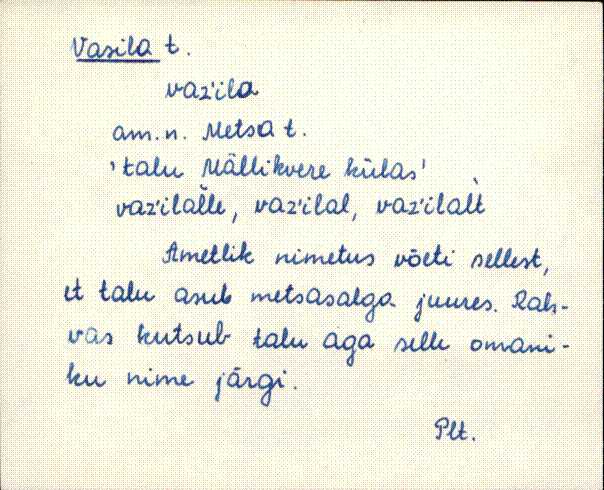 Vasila t.
vaz'ila
am.n. Metsa t.
'talu Mällikvere külas'
vaz'ilalle, vaz'ilal, vaz'ilalt
Ametlik nimetus võeti sellest,
et talu asub metsasalga juures. Rah-
vas kutsub talu aga selle omani-
ku nime järgi.
Plt.